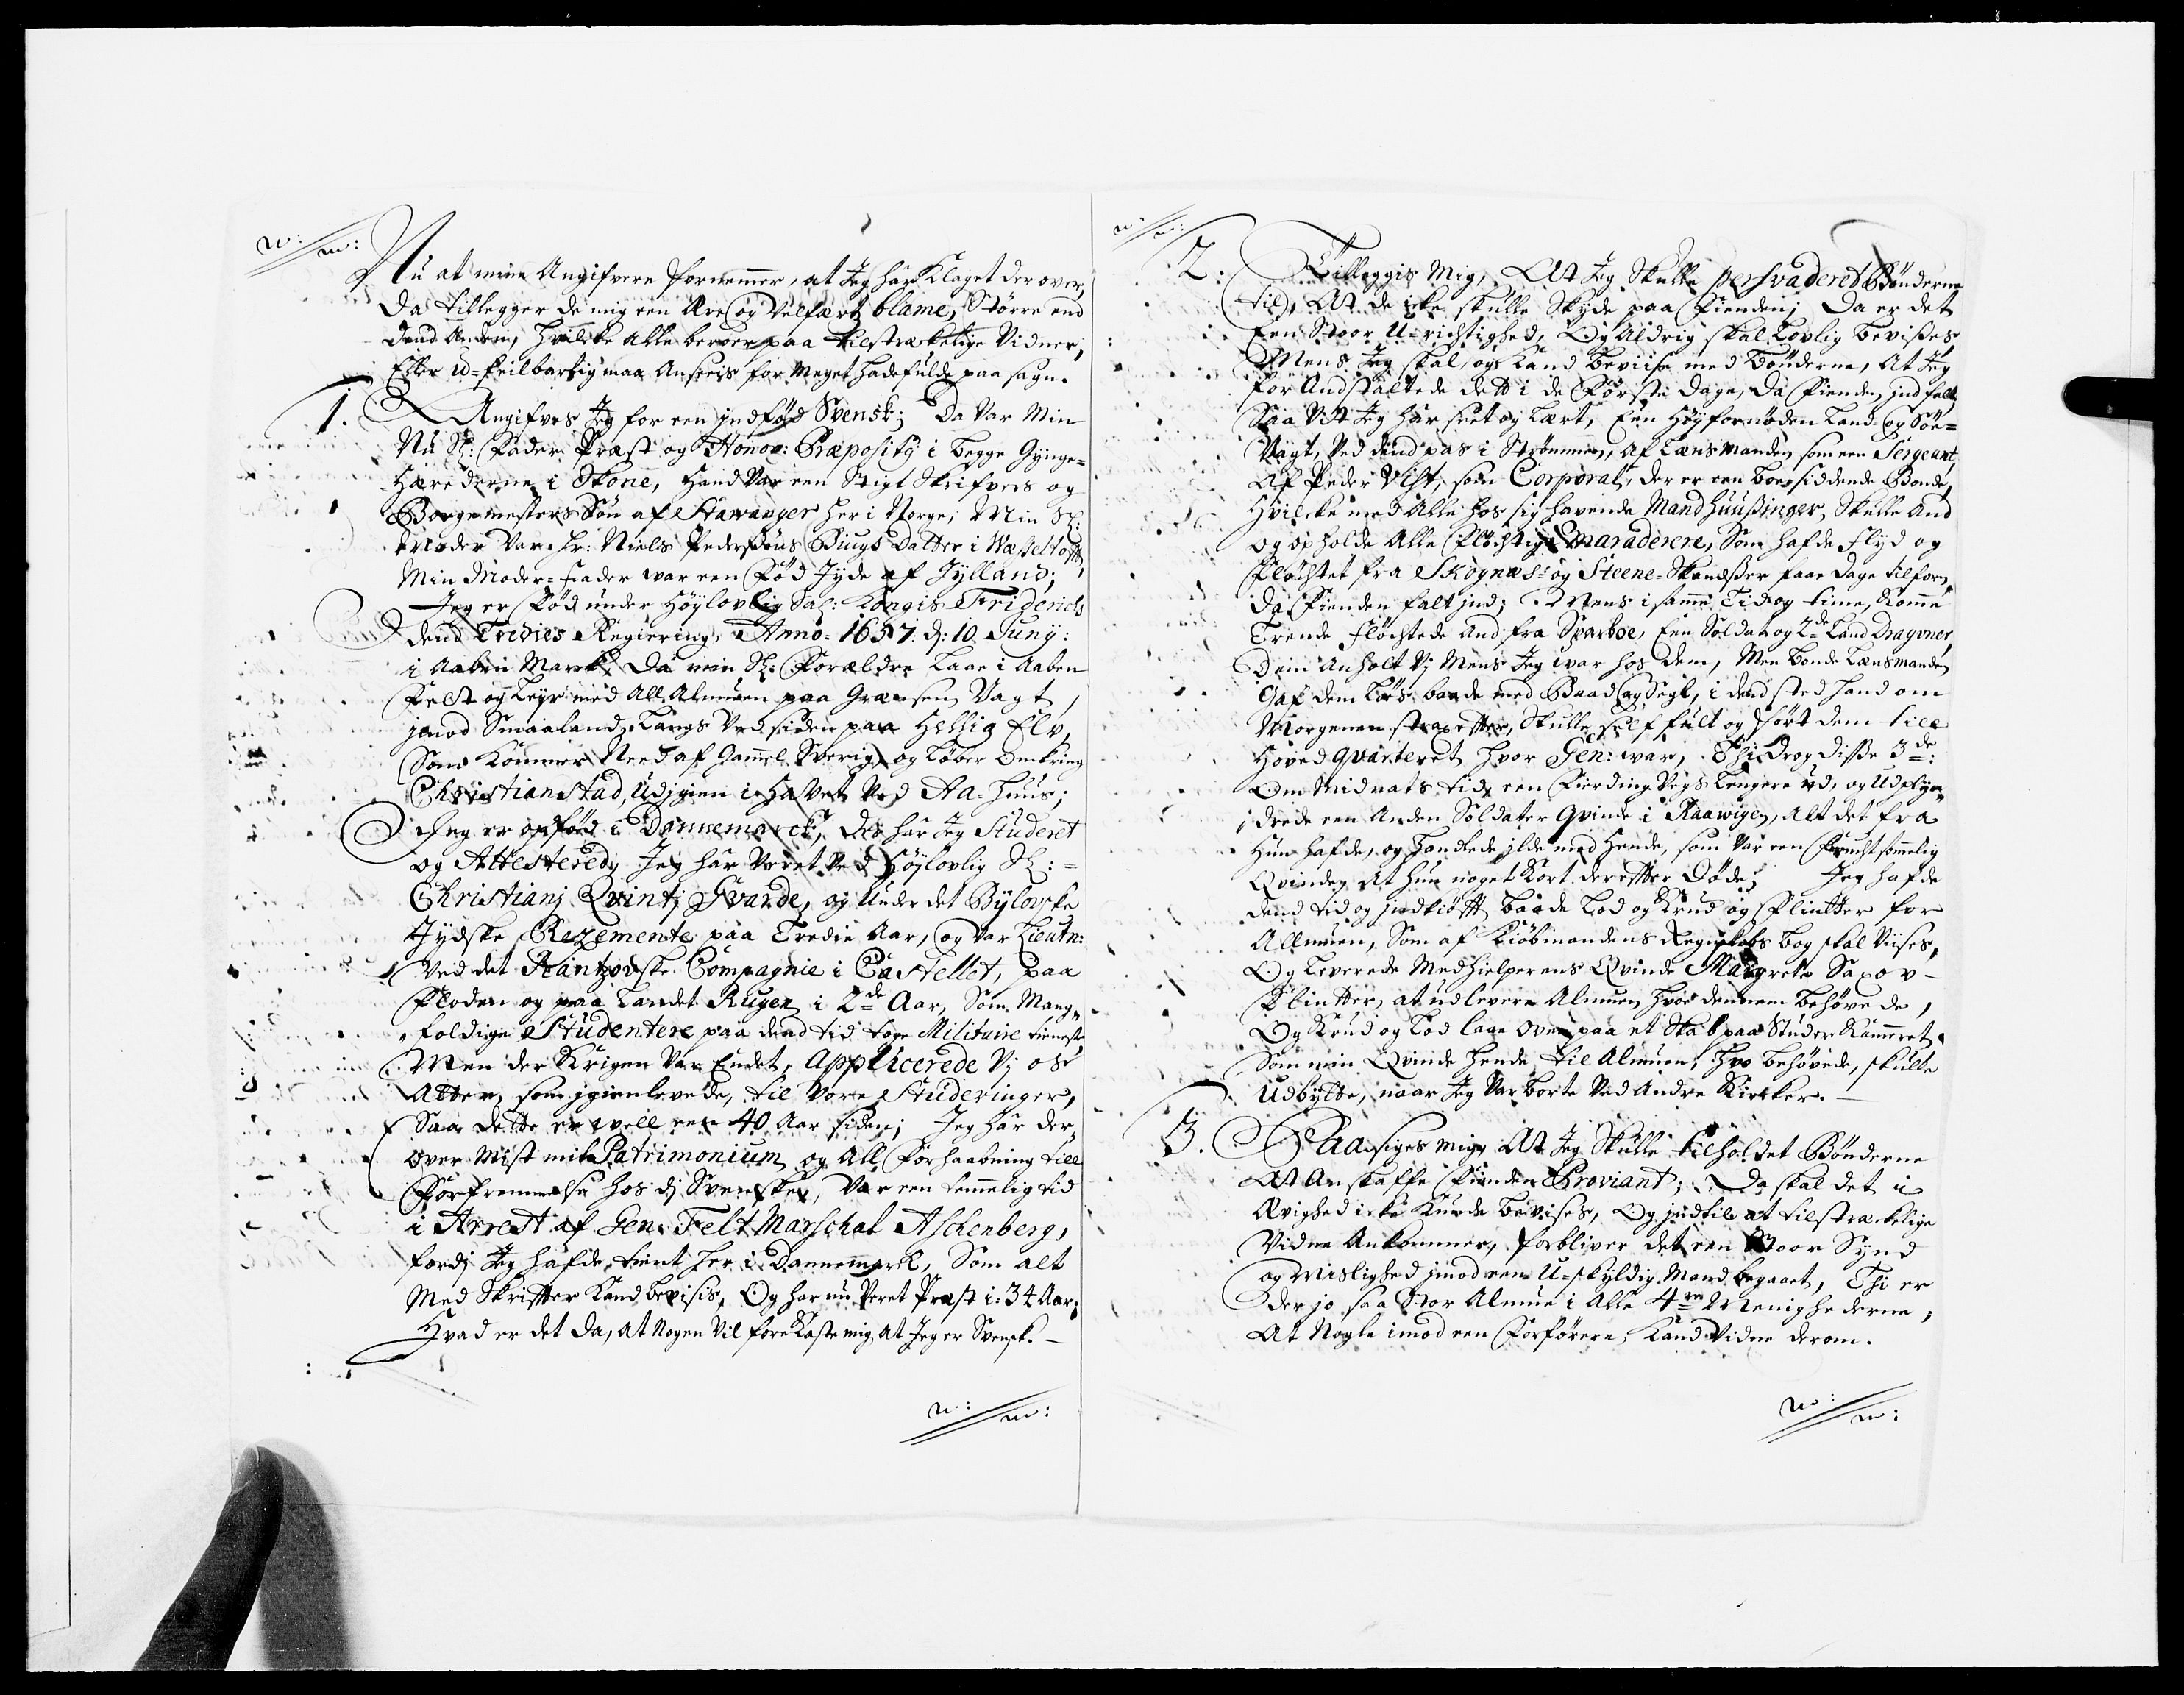 Nu at mine Angifvere fornemmer, at Jeg har Klaget der over,
Da tillegger de mig een Ære og Velfærtz blame, Større end
dend Anden, hvilke alle beroer paa tilstrækelige Vidner,
Eller U-feilbarlig maa Anseeis for meget hadefulde paa sagn.
1. Angifves Jeg for een indfød Svensk; Da Var Min
Nu Sl: Fader Præst og Honor: Præposity i begge Gynge-
Herrederne i Skone, Hand Var een Stigt Skrifvers og
Borgemesters Søn af Stawanger her i Norge, Min Sl:
Moder Var Hr: Niels Pedersøns Biugs Datter i
Min Moder-Fader war een Fød Jyde af Jylland;
Jeg er Fød under Høylovlig Sal: Kongis Friderichs
dend Tredies Regiering, Anno 1657. d: 10. Junij:
i Aaben Mark, Da min Sl: Forældre Laae i Aaben
Felt og Leyr med All Almuen paa Grænsen Vagt,
imod Smaaland, Langs Ved siden paa Hellig Elv,
Som Kommer Need af Gammel Sverig, og Løber omkring
Christianstad, Ud igien i Havet Ved Aa-huus;
Jeg er opfød i Dannemarck, der har Jeg Studeret
og Attestered, Jeg har Veret Ved Høylovlig Sl:
Christianj Qvintj Gvarde, og Under det Bylovske
Jydske Regemente paa Tredie Aar, og Var Lieutn:
Ved det Rantzovske Compagnie i Castellet, paa
Floden og paa Landet Rugen i 2de Aar, Som Mang-
foldige Studentere paa dend tid toge Militaire tieneste
Men der Krigen Var Endet, Applicerede Vj os
Atter, som igienlevede, til Vore Studeringer,
Saa dette er well een 40 Aar siden; Jeg har der
over Mist mit Patrimonium og All forhaabning till
Forfremmelse hos dj Svenske, Var een temmelig tid
i Arrest af Gen: Felt Marschal Aschenberg,
fordj Jeg hafde tient her i Dannemark, Som alt
Med Skrifter Kand bevisis, Og har nu Veret Præst i 34 Aar;
Hvad er det Da, at Nogen Vil forekaste mig, at Jeg er Svensk.
2. Tilleggis Mig, At Jeg Skulle persvaderet Bønderne
til, At de icke skulle Skyde paa Fienden; Da er det
Een Stoor U-richtighed, Og Aldrig skal Lovlig bevises,
Mens Jeg skal, og Kand beviise med Bønderne, At Jeg
for Andstaltede dett i de Første Dage, Da Fienden ind falt,
Saa Vit Jeg har seet og Lært, Een Høyfornøden Land- og Søe-
Vagt, Ved dend pas i Strømmen, af Lænsmanden som een Sergeant,
Af Peder Vist, som Corporal, der er een boesiddende Bonde,
Hvilcke med Alle hos sig havende Mandhuussinger, Skulle And
og opholde Alle Flöchtige Maraderere, Som hafde Flyd og
Flöchtet fra Skognæs- og Steene-Skandser faae Dage tilforn,
Da Fienden falt ind; Mens i samme Tid og time, Komme
Trende Flöchtede And fra Sparboe, Een Soldat og 2de Land Dragoner,
Dem Anholt Vj Mens Jeg war hos dem, Men bonde Lænsmanden
Gaf dem Løs baade med Baad og Segl, i dend sted hand om
Morgenen strax efter, Skulle self fult og ført dem till
Hoved Qvarteret hvor Gen: war, Thi drog disse 3de:
Om Midnats tid, een Fierding Veys Lengere ud, og Udplyn-
drede een Anden Soldater Qvinde i Raawigen, Alt det fra
Hun hafde, og handlede ilde med hende, som Var een Fruchtsommelig
Qvinde, At hun noget Kort derefter Døde; Jeg hafde
dend tid og indkiøfft baade Lod og Krud og Flintter for
Allmuen, Som af Kiøbmandens Regnskabs bog skal Viises,
Og Leverede Medhielperens Qvinde Margrete Saxov
Flintter, at udlevere Almuen hvor dennem behøvede,
Og Krud og Lod laae oven paa et Skab paa Studer Kammeret
Som min Qvinde hende til Almuen, hvo behøvede, skulle
Udbytte, naar Jeg Var borte Ved Andre Kircker.
3. Paasiges mig, At Jeg Skulle tilholdet Bønderne
At Anskaffe Fienden Proviant; Da skal det i
Ævighed icke Kunde bevises, Og indtil at tilstrækelige
Vidne Ankommer, forbliver det een Stoor Synd
og Mislighed imod een U-skyldig Mand begaaet, Thi er
der jo saa stor Almue i Alle 4re Menighederne,
At Nogle imod een Forførere, Kand Vidne derom.